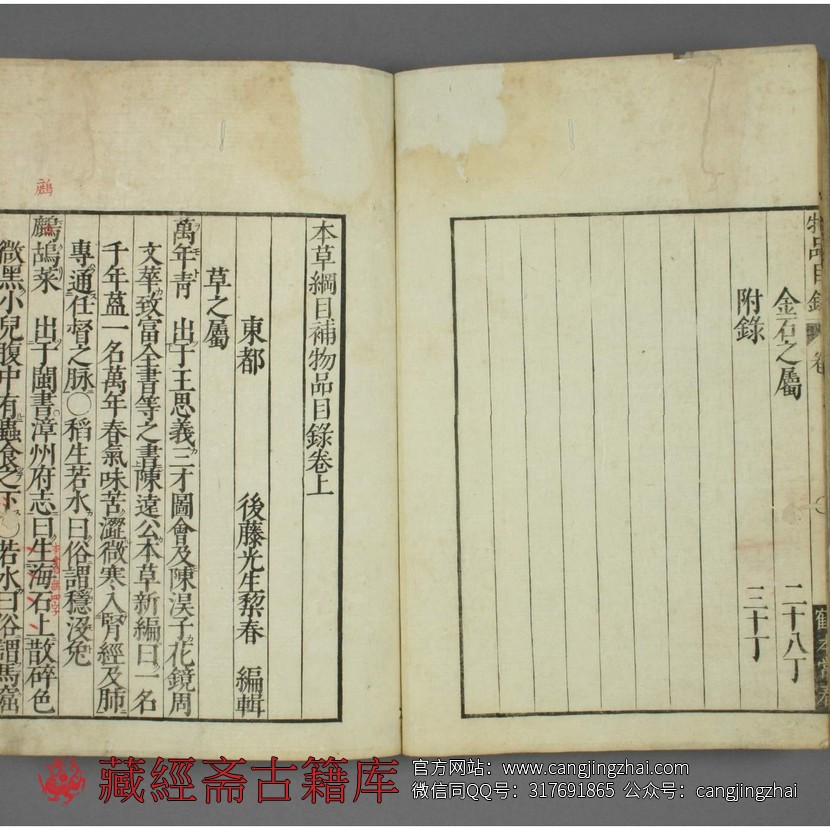 金石之屬 二十八丁
附錄 三十丁
本草綱目補物品目錄卷上
東都 後藤光生棃春 編輯
草之屬
萬年靑 出于王思義三才圖會及陳淏子花鏡周
文華致富全書等之書陳遠公本草新編曰一名
千年蒀一名萬年春氣味苦澀微寒入腎經及肺
專通任督之脉○稻生若水曰俗謂穩沒兔
鷓鴣菜 出于閩書漳州府志曰生海石上散碎色
微黑小兒腹中有蟲食之下○若水曰俗謂馬
藏經斋古籍库
官方网站：www.cangjingzhai.com
微信同QQ号：317691865 公众号：cangjingzhai